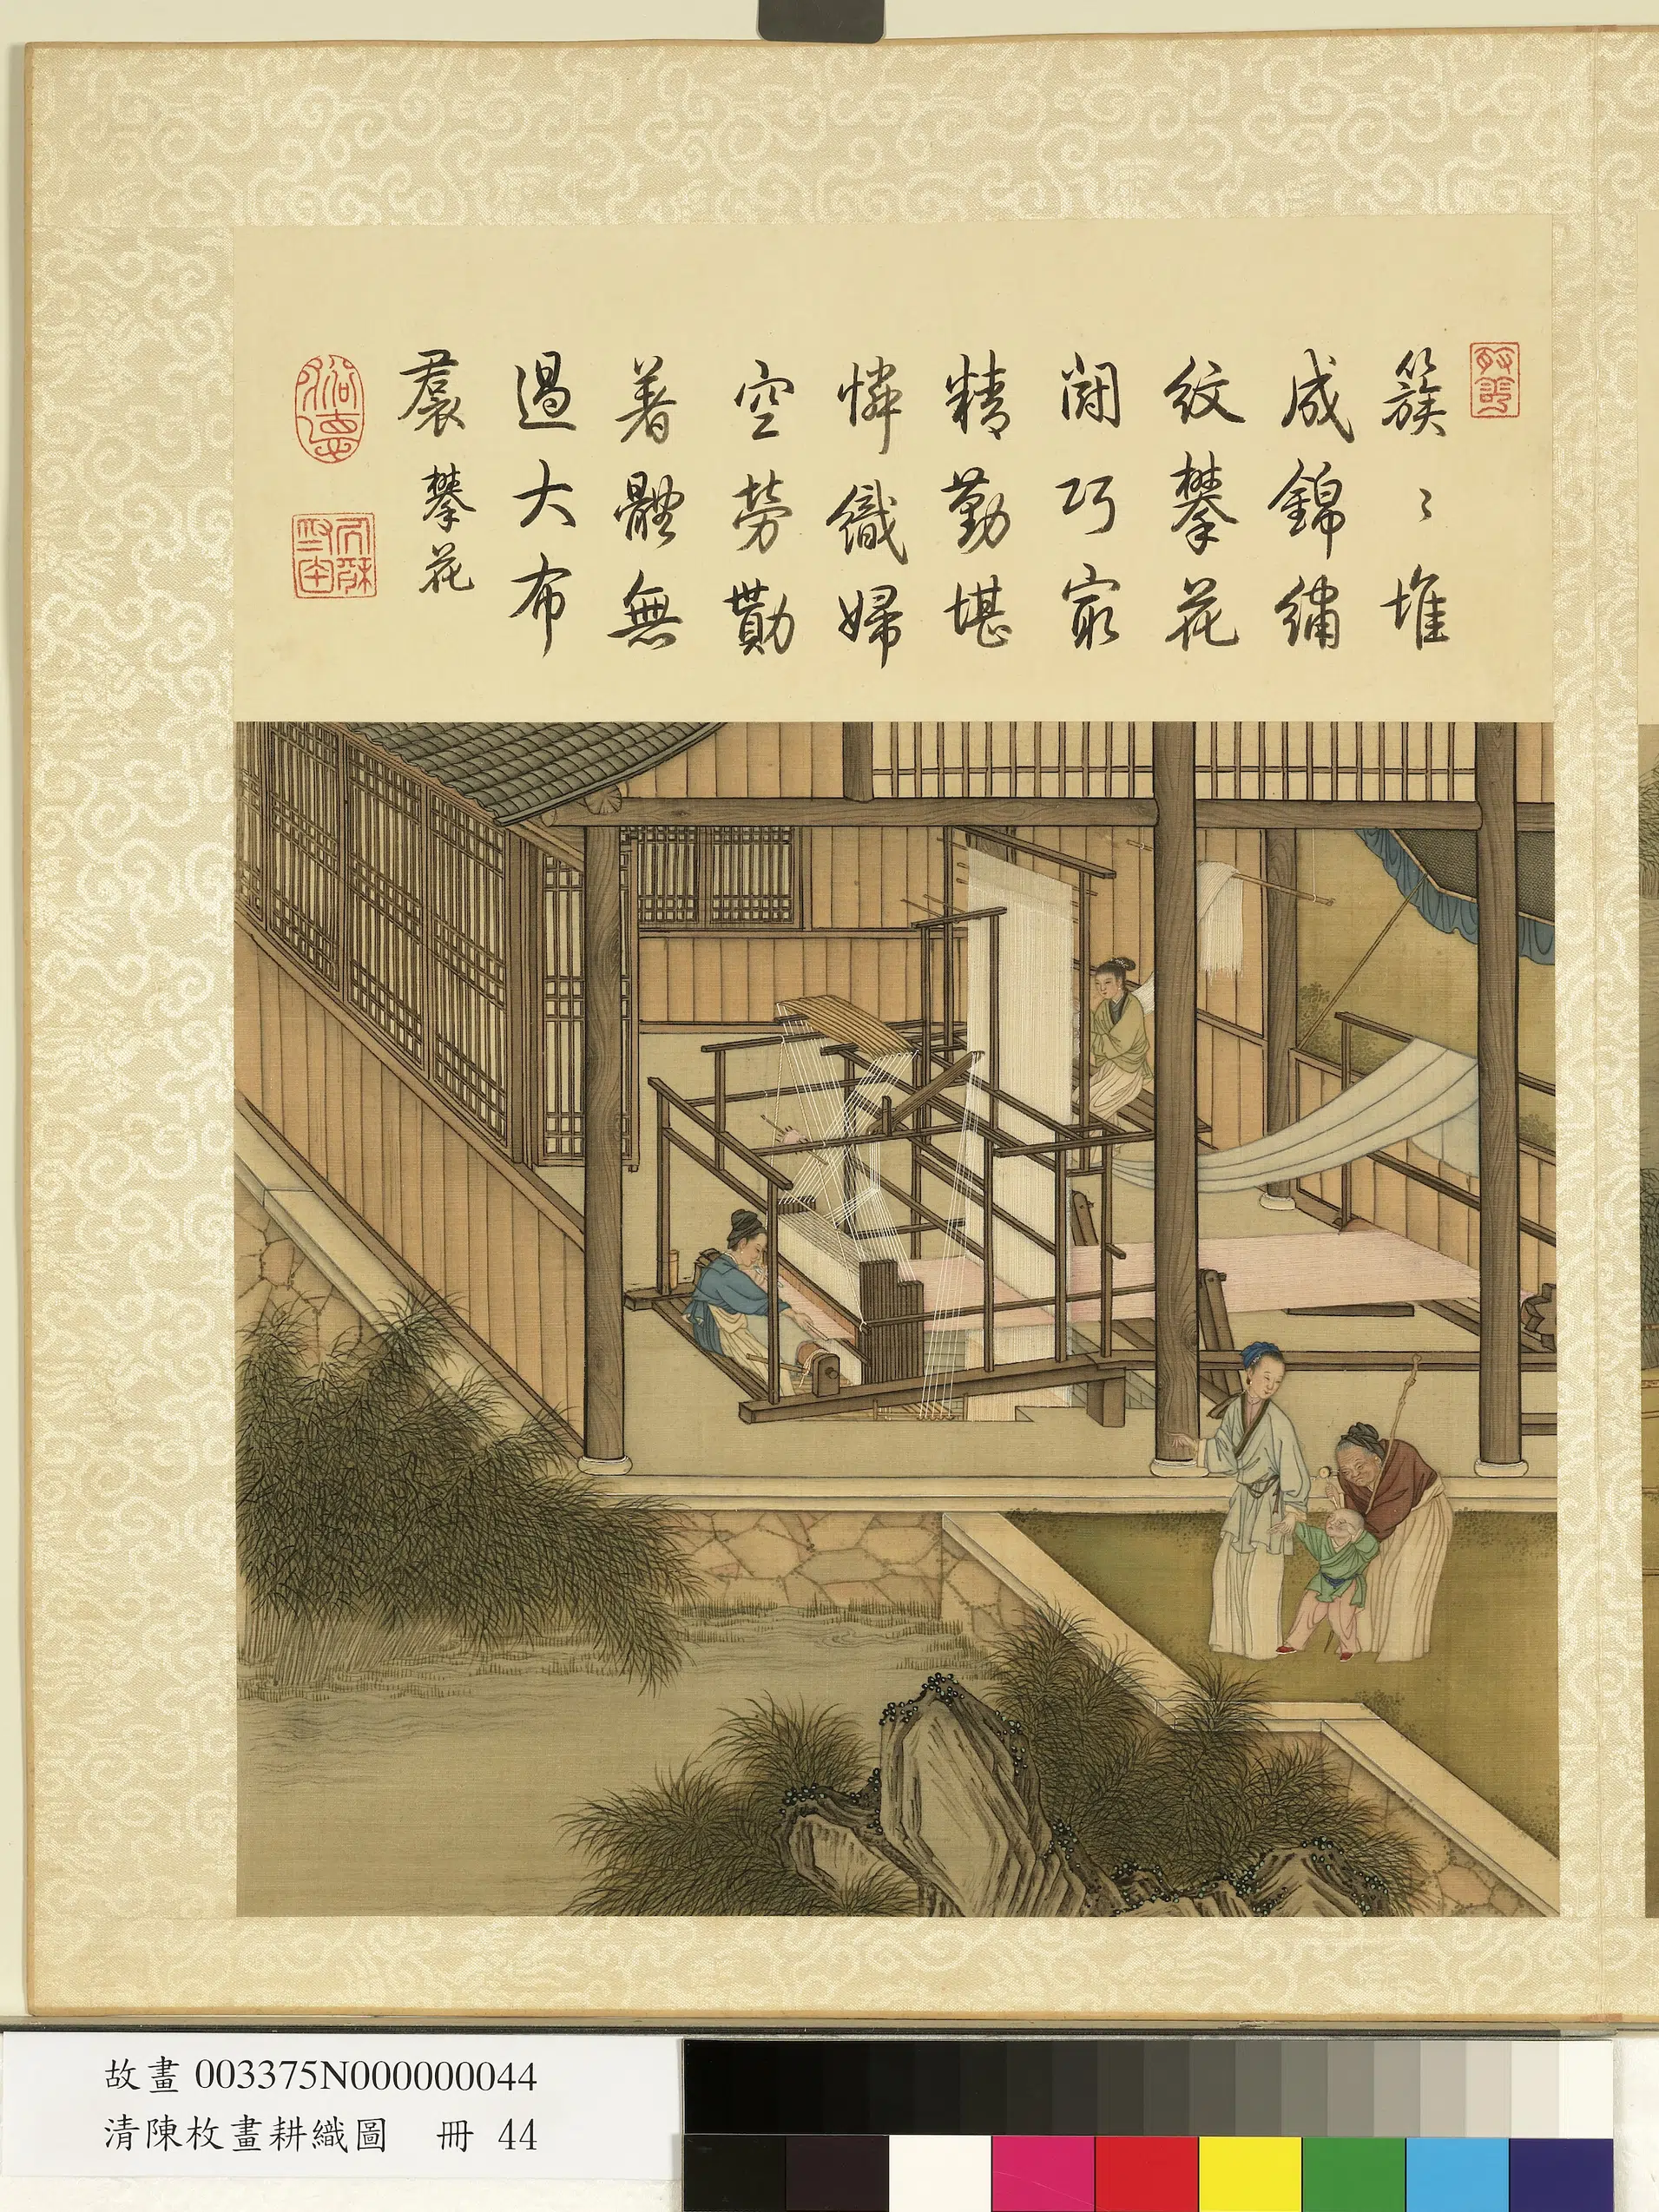 簇〻堆
成錦繡
紋攀花
鬪巧㝡
精勤堪
憐織婦
空勞勩
著體無
過大布
裠 攀花
故畫 003375N000000044
清陳枚畫耕織圖 冊 44